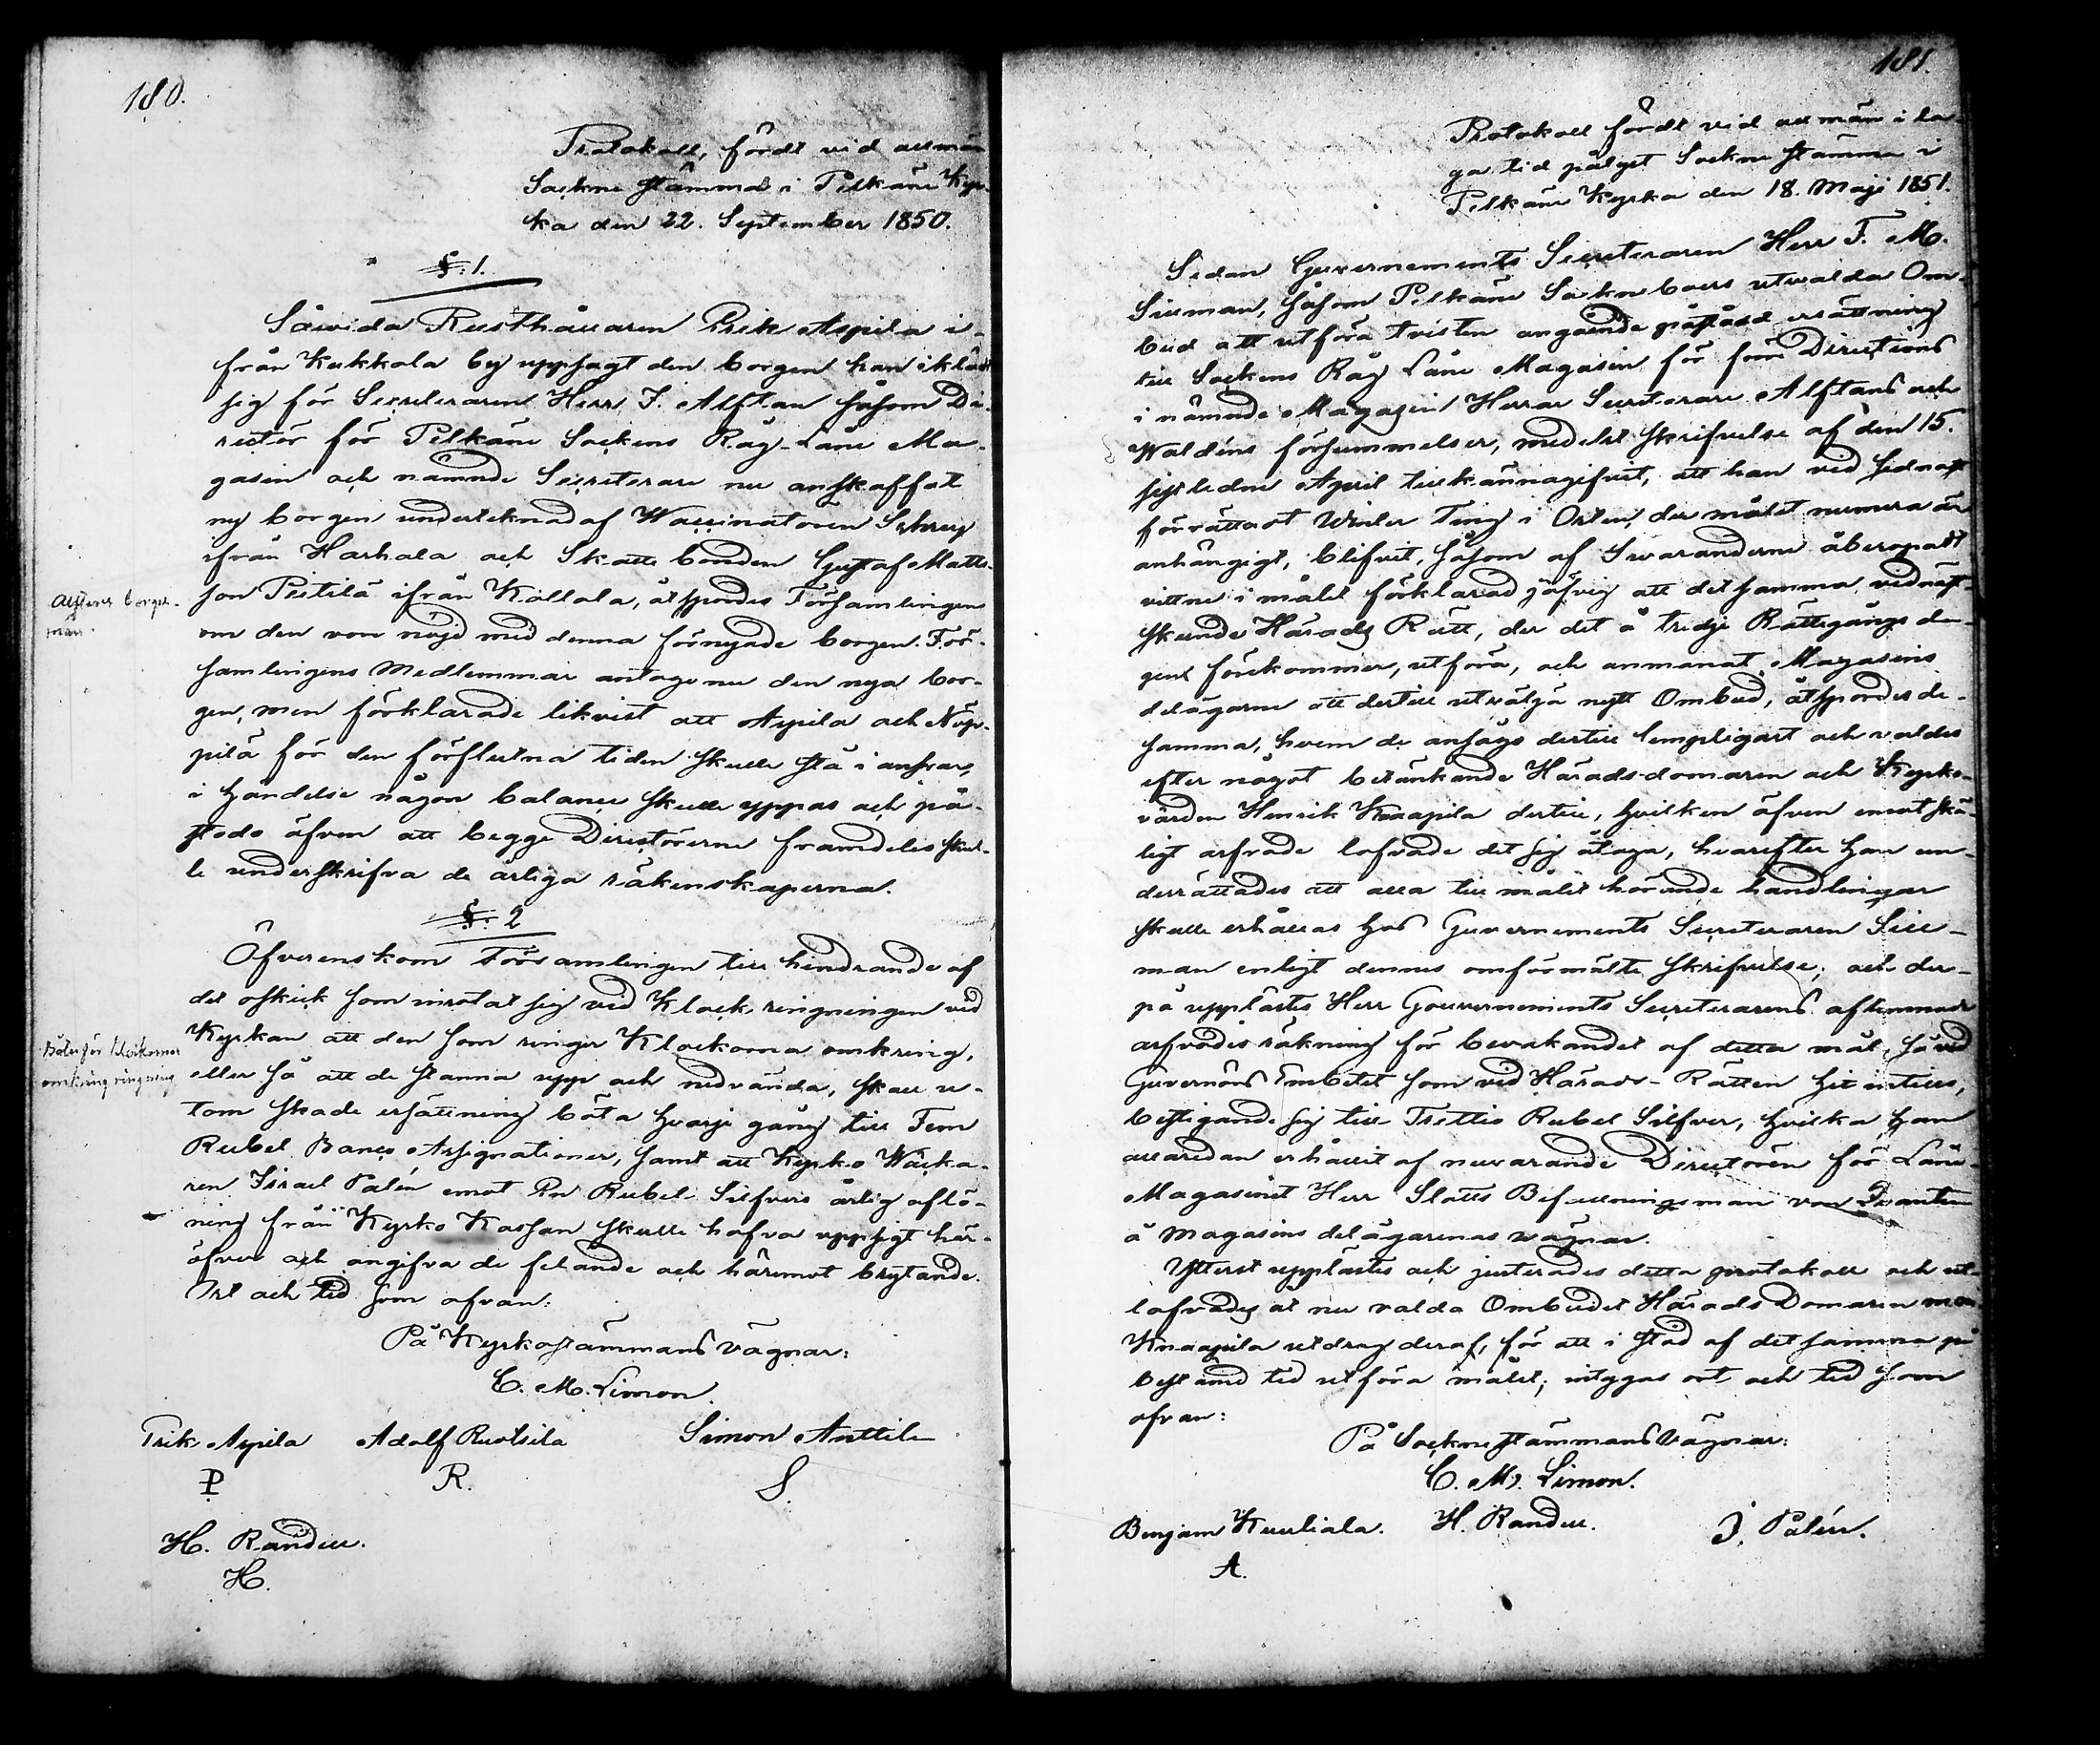 180.
Protokoll, fördt vid allmän
Sockne stämma i Pelkäne Kyr-
ka den 22. September 1850.
§. 1.
Såvida Rusthållaren Erik Aspila i-
från Kukkola by uppsagt den borgen han iklädt
sig för Secreteraren Herr F. Alftan såsom Di-
rectör för Pelkäne Sockens Råg-Låne Ma-
gasin och nämnde Secreterare nu anskaffat
ny borgen undertecknad af Waccinatoren
ifrån Harhala och Skatte bonden Gustaf Matts-
son Pietilä ifrån Kollola, åtspordes Församlingen
om den vore nöjd med denna förnyade borgen. För-
samlingens Medlemmar antogo nu den nya bor-
gen, men förklarade likvist att Aspila och Näp-
pilä för den förflutna tiden skulle stå i ansvar,
i händelse någon balance skulle yppas och på-
stodo äfven att begge Directörerne framdeles skul-
le underskrifva de årliga räkenskaperna.
Alftans borges-
män.
§. 2
Öfverenskom Församlingen till hindrande af
det oskick som inrotat sig vid Klock ringningen vid
Kyrkan att den som ringer Klockorna omkring,
eller så att de stanna upp och nedvända, skall u-
tom skade ersättning böta hvarje gång till Fem
Rubel Banco Assignationer, samt att Kyrko Wäcka-
ren Israel Palén emot En Rubel Silfvers årlig aflö-
ning från Kyrko Kassan skulle hafva uppsigt här-
öfver och angifva de felande och häremot brytande.
Ort och tid som ofvan:
Böter för klockornas
omkring ringning
På Kyrkostämmans vägnar:
C. M. Limon.
Erik Aspila Adolf Ruotsila Simon Anttila
P R. S.
H. Randell.
H.
181.
Protokoll fördt vid allmän i la-
ga tid pålyst Sockne stämma i
Pelkäne Kyrka den 18. Maji 1851.
Sedan Guvernements Secreteraren Herr F. M.
Sillman, såsom Pelkäne Sockneboers utvalda Om-
bud att utföra tvisten angående påstådd ersättning
till Sockens Råg Låne Magasin för förre Directions
i nämnde Magazin Herrar Secreterare Alftans och
Waldéns försummelser, medelst skrifvelse af den 15.
sistledne April tillkännagifvit, att han vid sednast
förrättadt Winter Ting i Orten, der målet numera är
anhängigt, blifvit, såsom af Svaranderne åberopadt
vittne i målet förklarad jäfvig att det samma vid näst-
skeende Härads Rätt, der det å tredje Rättegångs da-
gen förekommer, utföra, och anmanat Magasins
delägarne att dertill utvälja nytt Ombud, åtspordes de-
samma, hvem de ansågo dertill lempligast och valdes
efter något betänkande Härads-domaren och Kyrko-
värden Henrik Knaapila dertill, hvilken äfven emot skä-
ligt arfvode lofvade det sig åtaga, hvarefter han un-
derrättades att alla till målet hörande handlingar
skulle erhållas hos Guvernements Secreteraren Sill-
man enligt dennes omförmälte skrifvelse; och der-
på upplästes Herr Gouvernements Secreterarens aflemnade
arfvodes räkning för bevakandet af detta mål, så vid
Guvernörs Embetet som vid Härads-Rätten hit intills,
bestigande sig till Trettio Rubel Silfver, hvilka han
allaredan erhållit af nuvarande Directören för Låne-
Magasinet Herr Slotts Befallningsman von
å Magasins delägarenas vägnar.
Ytterst upplästes och justerades detta protokoll och ut-
lofvades åt nu valda Ombudet Härads Domaren
Knaapila utdrag deraf, för att i stöd af det samma på
bestämd tid utföra målet; intygas ort och tid som
ofvan:
På Sockne stämmans Vägnar:
C. M. Limon.
Benjam Kuuliala. H. Randell. J. Palén.
A.